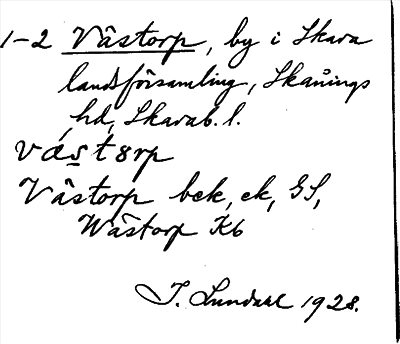 1-2 Västorp, by i Skara
landsförsamling, Skånings
hd, Skarab. l.
västorp
Västorp bek, ek, GS,
Wästorp Kb
I. Lundahl 1928.